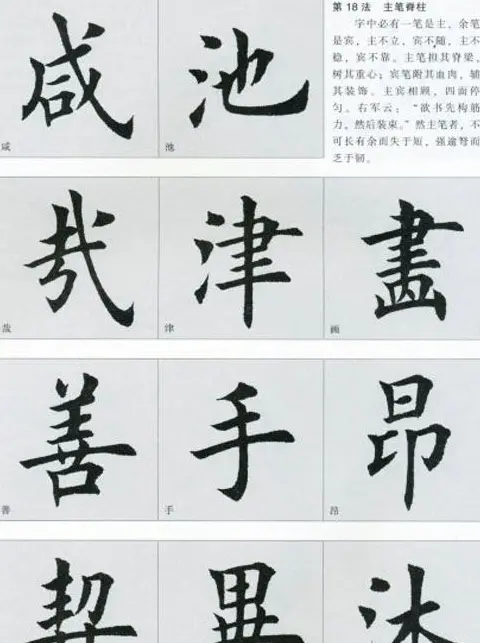 第18法 主笔脊柱
字中必有一笔是主，余笔
是宾，主不立，宾不随，主不
稳，宾不靠。主笔担其脊梁，
树其重心；宾笔附其血肉，辅
其装饰。主宾相顾，四面停
匀。右军云：“欲书先构筋
力，然后装束。”然主笔者，不
可长有余而失于短，强逾弩而
乏于韧。
咸 池
咸 池
哉 津 畫
哉 津 画
善 手 昂
善 手 昂
契 畢 沐